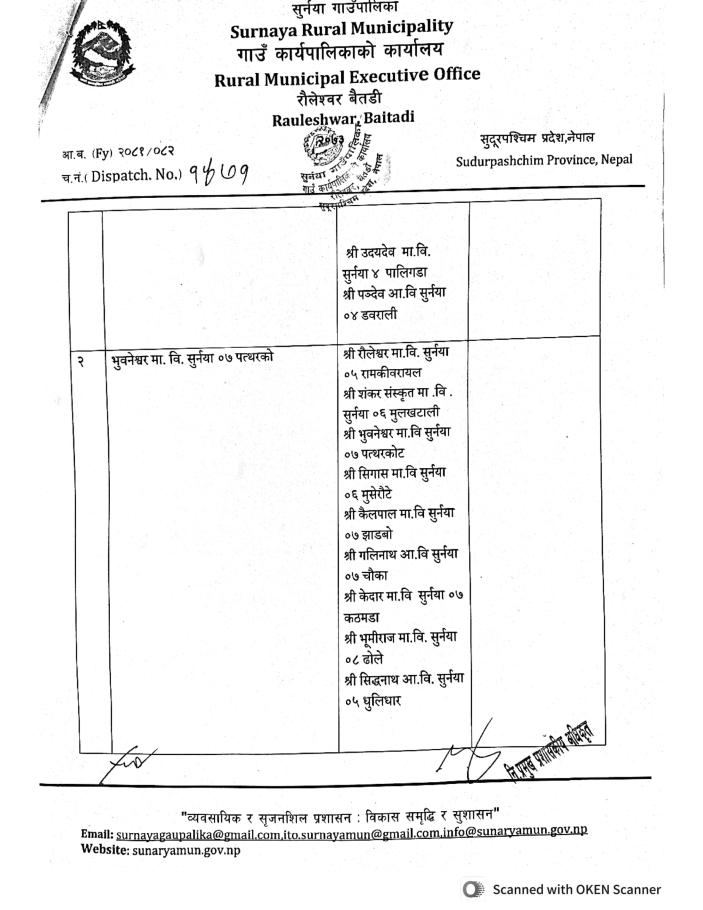 सुर्नया गाउँपालिका
Surnaya Rural Municipality
गाउँ कार्यपालिकाको कार्यालय
Rural Municipal Executive Office
रौलेश्वर बैतडी
Rauleshwar, Baitadi
सुदूरपश्चिम प्रदेश,नेपाल
Sudurpashchim Province, Nepal
आ.ब. (Fy) २०८१/०८२
च.नं.( Dispatch. No.)
२०७३
सुर्नया गाउँपालिका
गाउँ कार्यपालिकाको कार्यालय
रौलेश्वर, बैतडी
सुदूरपश्चिम प्रदेश, नेपाल
श्री उदयदेव मा.वि.
सुर्नया ४ पालिगडा
श्री पञ्देव आ.वि सुर्नया
०४ डवराली
२
भुवनेश्वर मा. वि. सुर्नया ०७ पत्थरको
श्री रौलेश्वर मा.वि. सुर्नया
०५ रामकीवरायल
श्री शंकर संस्कृत मा .वि .
सुर्नया ०६ मुलखटाली
श्री भुवनेश्वर मा.वि सुर्नया
०७ पत्थरकोट
श्री सिगास मा.वि सुर्नया
०६ मुसेरौटे
श्री कैलपाल मा.वि सुर्नया
०७ झाडबो
श्री गलिनाथ आ.वि सुर्नया
०७ चौका
श्री केदार मा.वि सुर्नया ०७
कठमडा
श्री भूमीराज मा.वि. सुर्नया
०८ ढोले
श्री सिद्धनाथ आ.वि. सुर्नया
०५ धुलिधार
नि.प्रमुख प्रशासकीय अधिकृत
"व्यवसायिक र सृजनशिल प्रशासन : विकास समृद्धि र सुशासन"
Email: surnayagaupalika@gmail.com,ito.surnayamun@gmail.com,info@sunaryamun.gov.np
Website: sunaryamun.gov.np
Scanned with OKEN Scanner